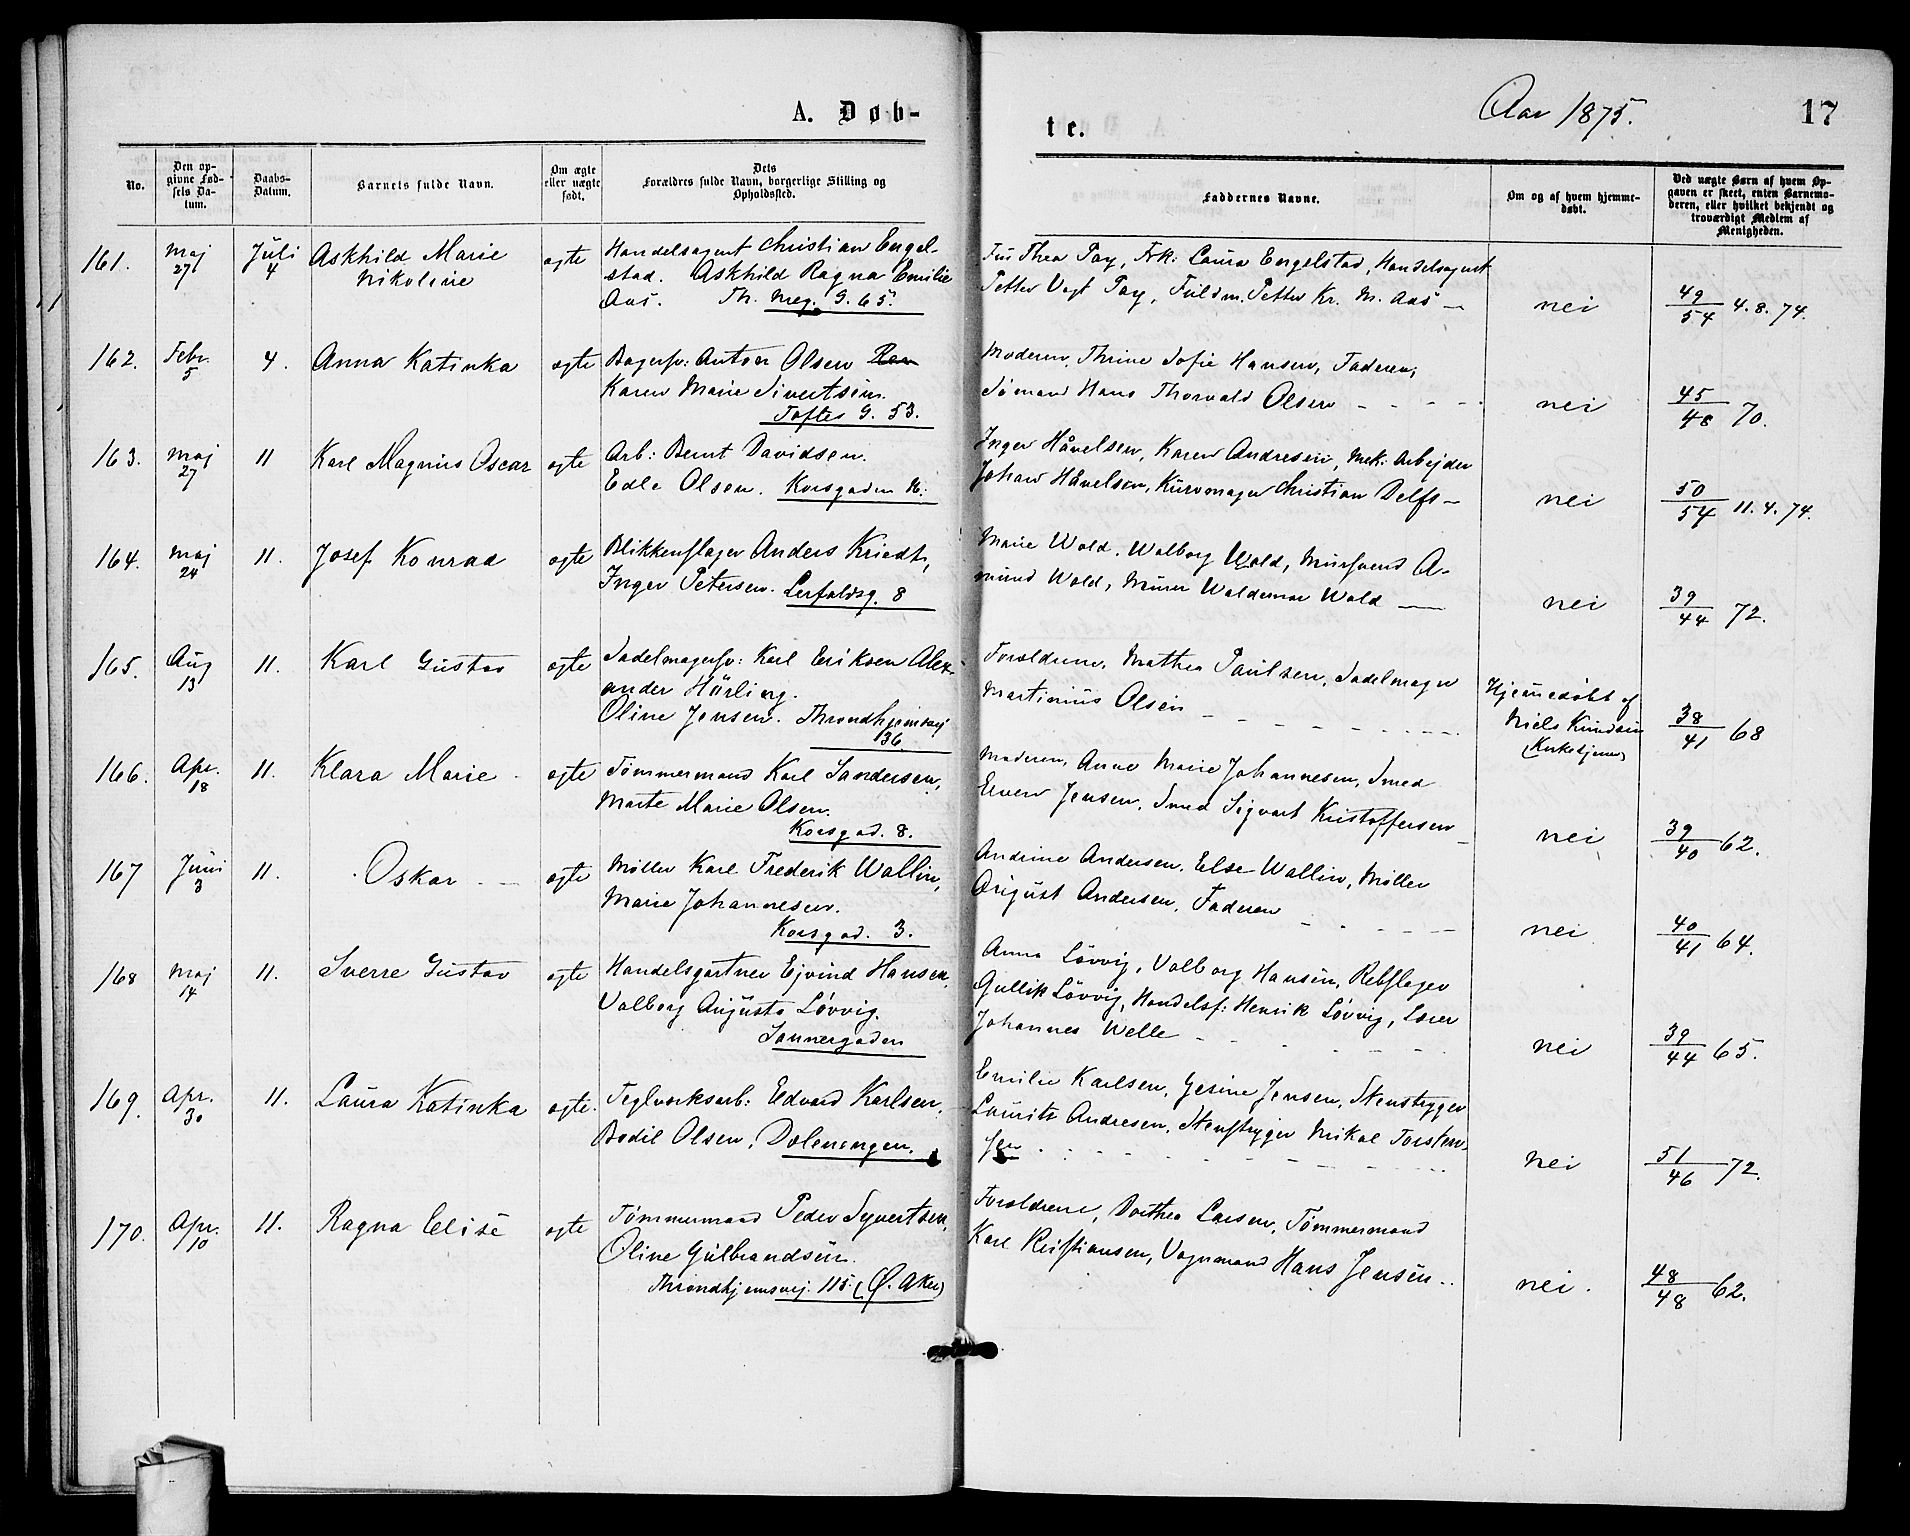 A. Døb-
te.
Aar 1875.
17
No.
Den op-
givne Fød-
sels Da-
tum.
Daabs-
Datum.
Barnets fulde Navn.
Om ægte
eller uægte
født.
Dets
Forældres fulde Navn, borgerlige Stilling og
Opholdssted.
Faddernes Navne.
Om og af hvem hjemme-
døbt.
Ved uægte Børn af hvem Op-
gaven er skeet, enten Barnemo-
deren, eller hvilket bekjendt og
troværdigt Medlem af
Menigheden.
161. Maj 27 Juli 4 Askhild Marie
Nikoline
ægte
Handelsagent Christian Engel-
stad. Askhild Ragna Emilie
Aas. Th. Meg. G. 65.
Fru Thea Pay, Frk: Laura Engelstad, Handelsagent
Petter Vogt Pay, Fuldm. Petter Kr. M. Aas —
nei
49/54 4.8.74.
162. Febr. 5 4. Anna Katinka
ægte
Bagersv: Anton Olsen
Karen Marie Sivertsen.
Toftes G. 53.
Moderen, Thrine Sofie Hansen, Faderen,
Sømand Hans Thorvald Olsen - - - -
nei
45/48 70.
163. Maj 27 11 Karl Magnus Oscar
ægte
Arb: Bernt Davidsen.
Edle Olsen. Korsgaden 16.
Inger Håvelsen, Karen Andresen, Mek: Arbejder
Johan Håvelsen, Kurvmager Christian Delfs —
nei
50/54 11.4.74.
164. Maj 24 11. Josef Konrad
ægte
Blikkenslager Anders Kriedt,
Inger Petersen. Lerfaldsg. 8
Marie Wold, Walborg Wold, Mursvend A-
mund Wold, Murer Waldemar Wold —
nei
39/44 72.
165. Aug 13 11. Karl Gustav
ægte
Sadelmagersv: Karl Eriksen Alex-
ander Hörling.
Oline Jensen. Throndhjemsvej
36
Forældrene, Mathea Paulsen, Sadelmager
Martinius Olsen - - - - - -
Hjemmedøbt af
Niels Knudsen
(Kirketjener)
38/41 68
166. Apr. 18 11. Klara Marie
ægte
Tømmermand Karl Sandersen,
Marte Marie Olsen.
Korsgad. 8.
Moderen, Anne Marie Johannesen, Smed
Even Jensen, Smed Sigvart Kristoffersen -
nei
39/40 62.
167 Juni 3 11. Oskar
ægte
Møller Karl Frederik Wallin,
Marie Johannesen.
Korsgad. 3.
Andrine Andersen, Else Wallin, Møller
August Andersen, Faderen - - - -
nei
40/41 64.
168 Maj 14 11. Sverre Gustav
ægte
Handelsgartner Ejvind Hansen,
Valborg Augusta Lövvig.
Sannergaden
Anna Lövvig, Valborg Hansen, Rebslager
Gullik Lövvig, Handelsf: Henrik Lövvig, Lærer
Johannes Welle - - - - -
nei
39/44 65.
169. Apr. 30 11. Laura Katinka
ægte.
Teglverksarb: Edvard Karlsen,
Bodil Olsen, Dælenengen.
Emilie Karlsen, Gesine Jensen, Stenhygger
Laurits Andresen, Stenhygger Mikal Torsten-
sen - - - - - -
nei
51/46 72.
170. Apr. 10 11. Ragna Elise
ægte
Tømmermand Peder Syvertsen,
Oline Gulbrandsen.
Throndhjemsvej. 115. (Ø. Aker)
Forældrene, Dorthea Larsen, Tømmermand
Karl Kristiansen, Vognmand Hans Jensen..
nei.
48/48 62.